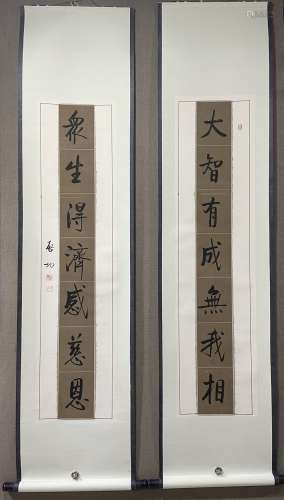 大智有成無我相
眾生得濟感慈恩
啟功